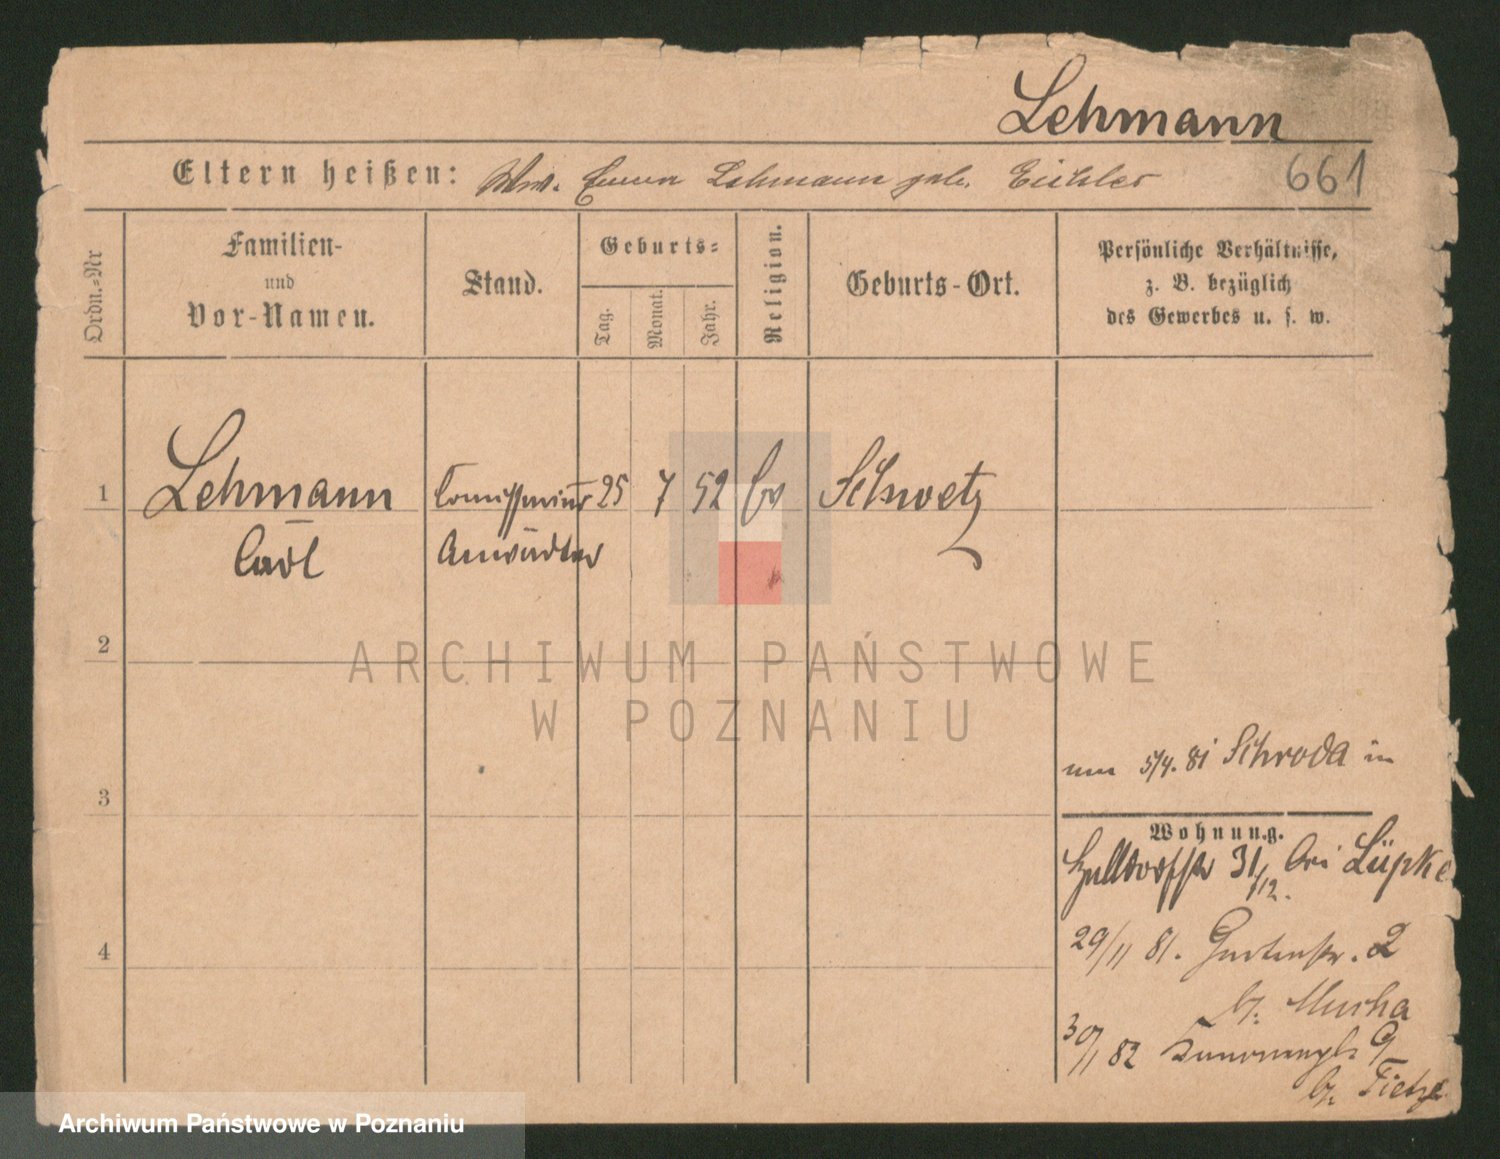 Lehmann
Eltern heißen: Ww. Emma Lehmann geb. Eichler
661
Ordn.-Nr
Familien-
und
Vor-Namen.
Stand.
Geburts-
Tag.
Monat.
Jahr.
Religion.
Geburts-Ort.
Persönliche Verhältnisse,
z. B. bezüglich
des Gewerbes u. s. w.
1
Lehmann
Carl
Anwärter
25
7
52
ev
Schwetz
2
ARCHIWUM PAŃSTWOWE
W POZNANIU
3
5/4. 81 Schroda
Wohnung.
31/12. bei Lüpke
4
29/11 81. Gartenstr. 2
b. Mucha
30/1 82 9
b. Tietze
Archiwum Państwowe w Poznaniu